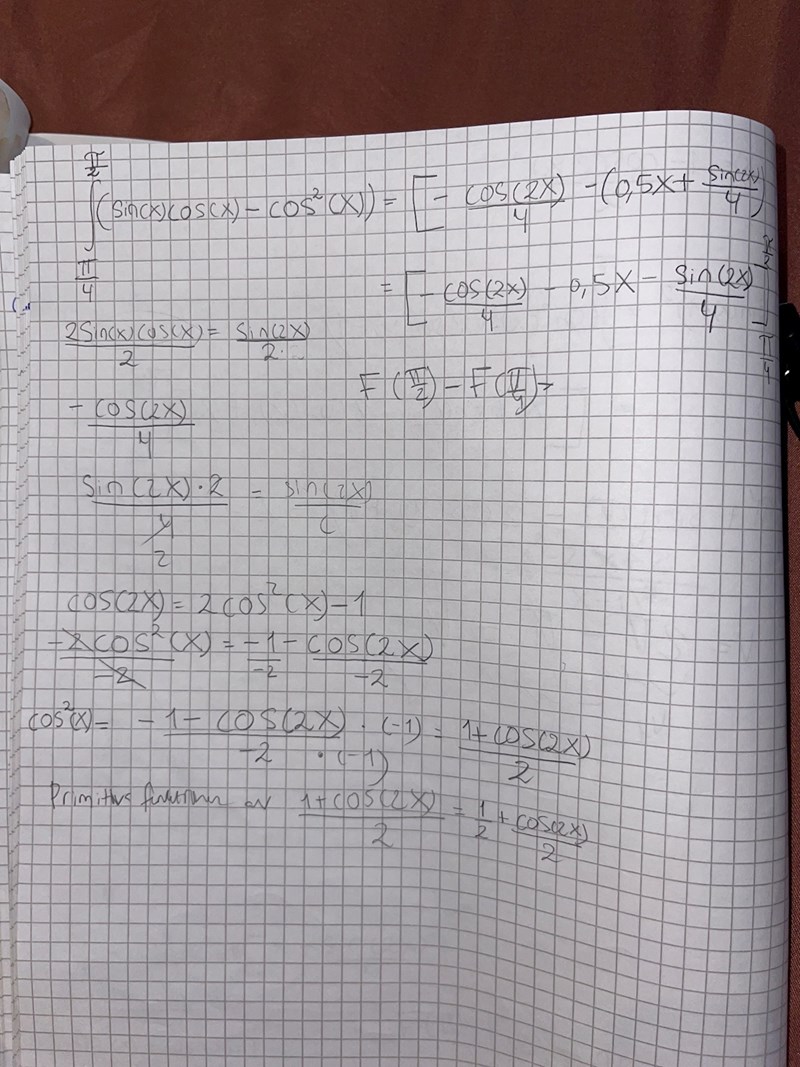 ∫_{π/4}^{π/2} (sin(x)cos(x) - cos²(x)) = [- cos(2x)/4 - (0,5x + sin(2x)/4)
= [- cos(2x)/4 - 0,5x - sin(2x)/4]_{π/4}^{π/2}
2sin(x)cos(x)/2 = sin(2x)/2
F(π/2) - F(π/4) =
- cos(2x)/4
sin(2x)·2/4 2 = sin(2x)
cos(2x) = 2cos²(x) - 1
-2cos²(x)/-2 = -1/-2 - cos(2x)/-2
cos²(x) = -1 - cos(2x)/-2 · (-1)/·(-1) = 1 + cos(2x)/2
1 + cos(2x)/2 = 1/2 + cos(2x)/2